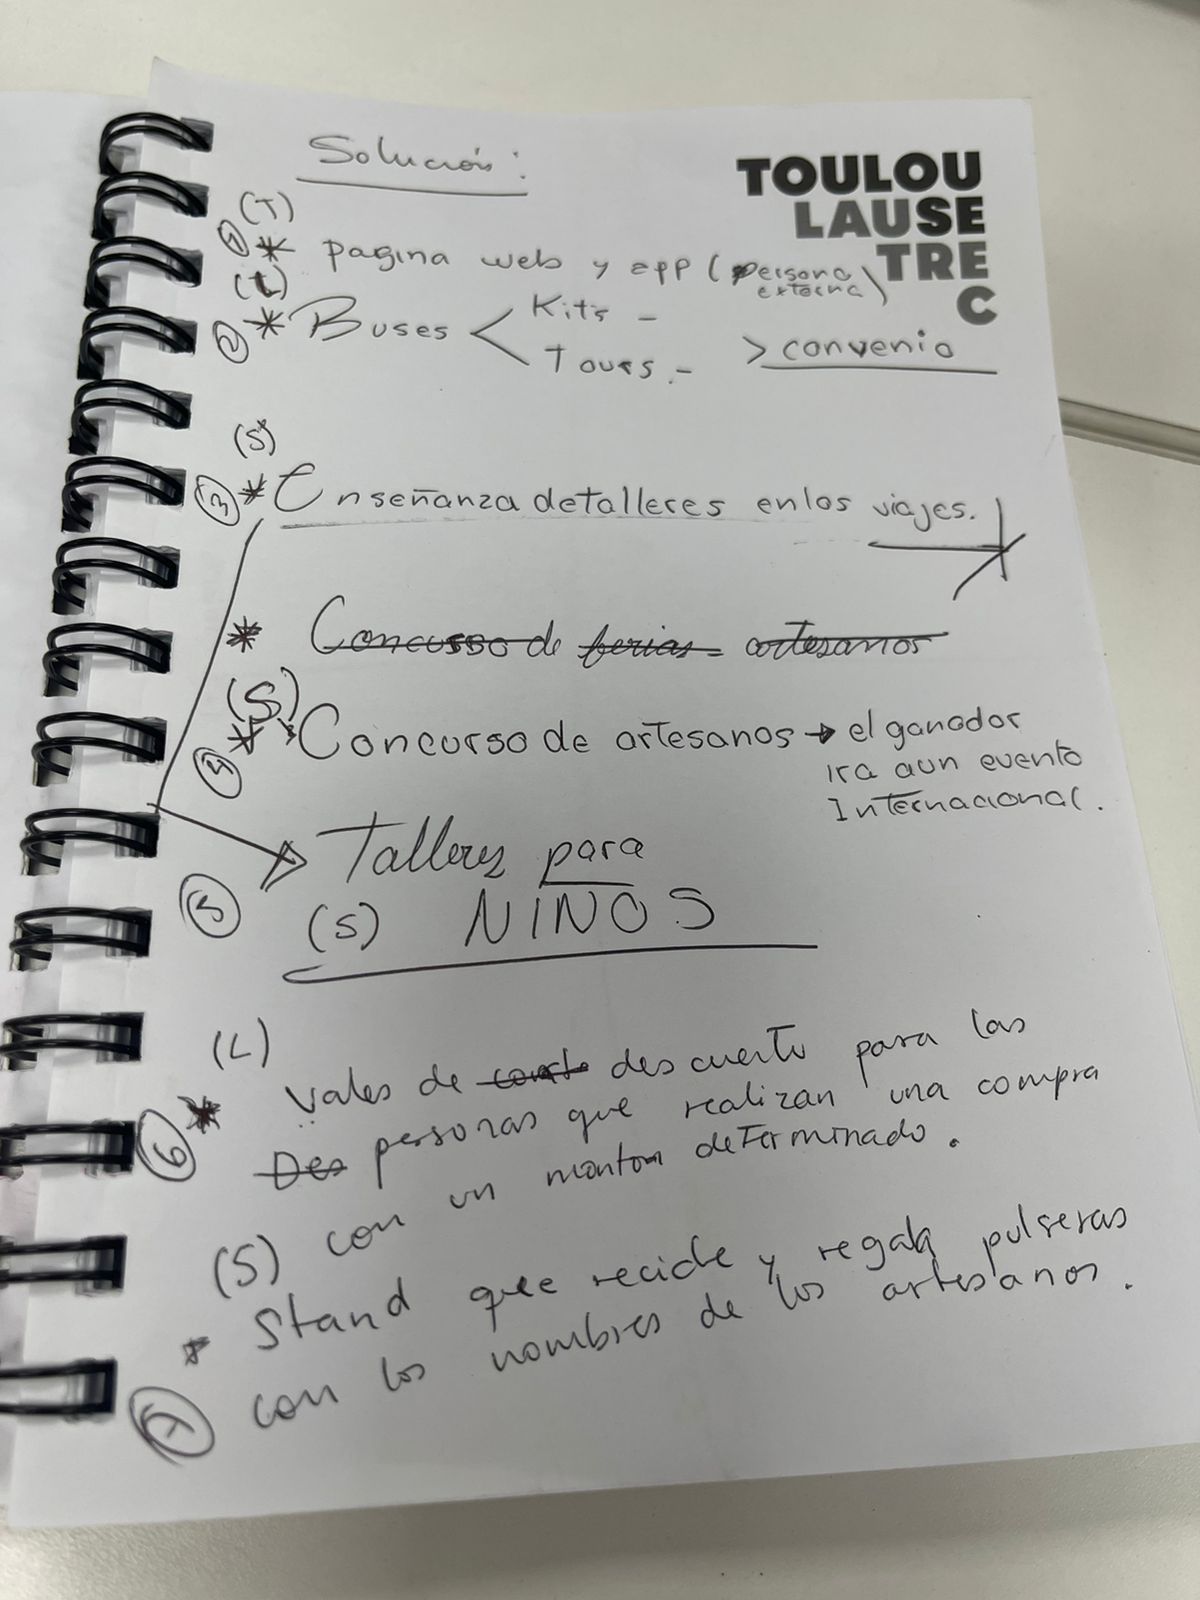 Solución:
TOULOU
LAUSE
TRE
C
(T)
① * pagina web y app (persona
externa)
(L)
② * Buses < Kits -
Tours.-
> convenio
(S)
③ * Enseñanza de talleres en los viajes.
* Concurso de ferias artesanos
(S)
④ * Concurso de artesanos → el ganador
ira a un evento
Internacional.
⑤ Talleres para
(S) NIÑOS
(L)
⑥ * Vales de descuento para las
Des personas que realizan una compra
con un monton determinado.
(S)
* Stand que recicle y regala pulseras
⑦ con los nombres de los artesanos.